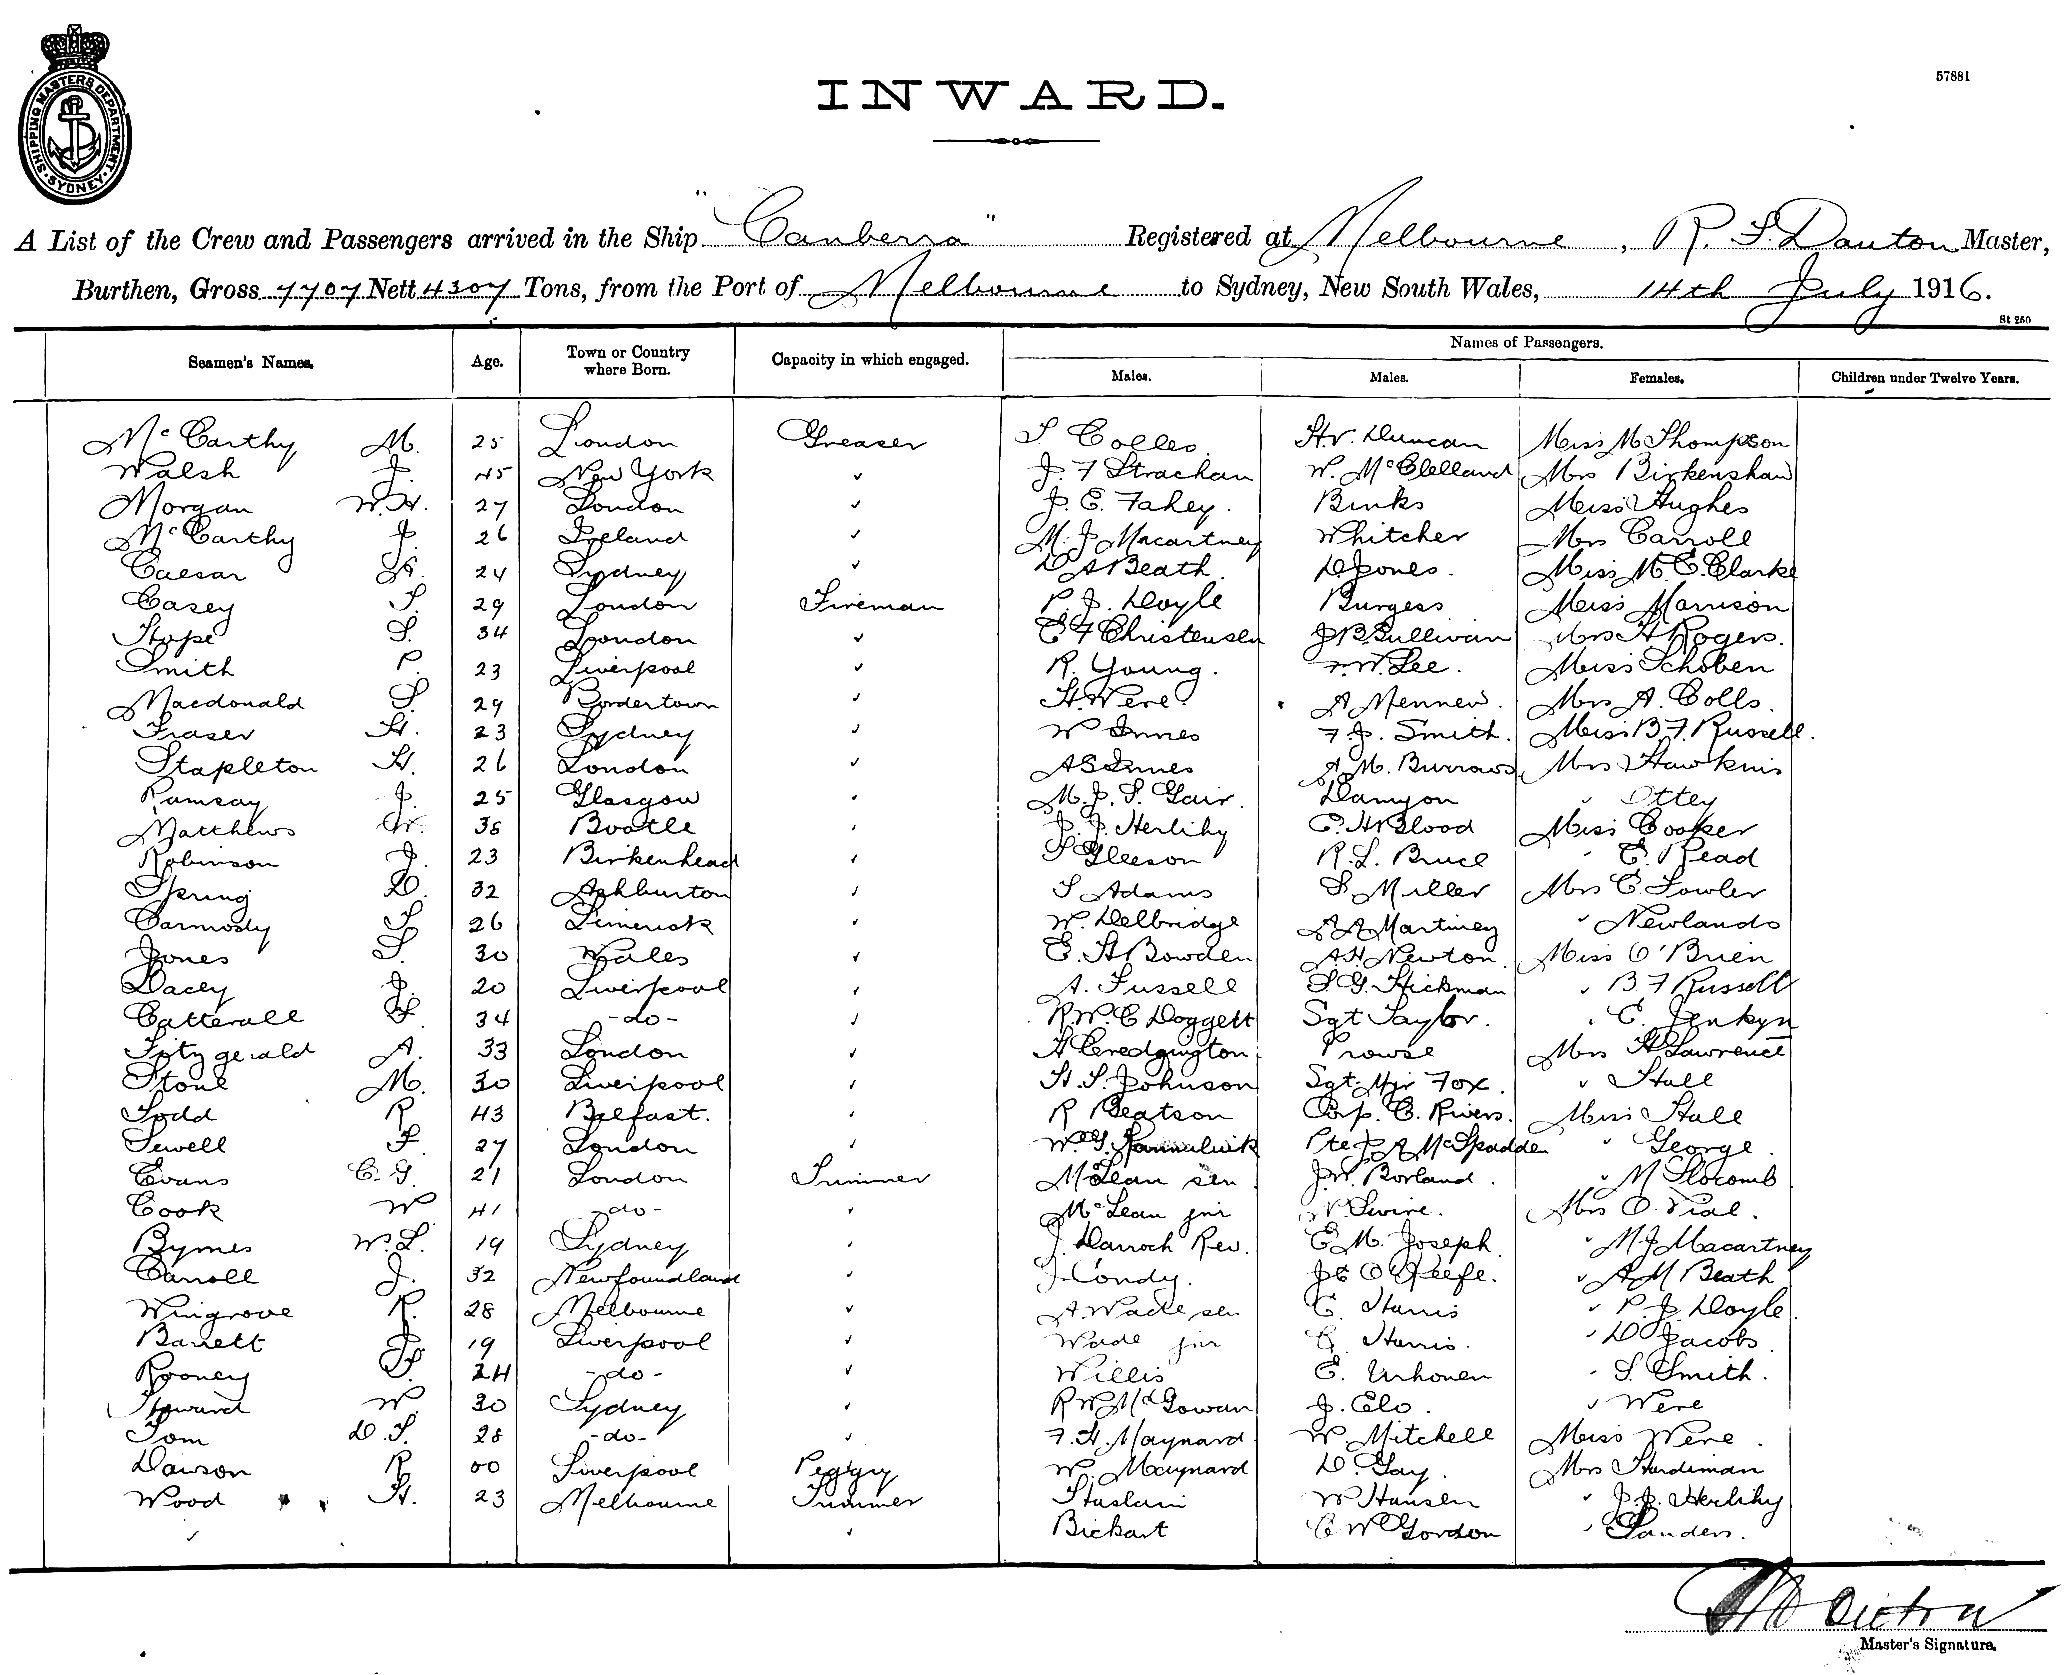 SHIPPING MASTERS DEPARTMENT. SYDNEY.
57881
INWARD.
A List of the Crew and Passengers arrived in the Ship "Canberra" Registered at Melbourne, R. S. Dauton Master,
Burthen, Gross 7707 Nett 4307 Tons, from the Port of Melbourne to Sydney, New South Wales, 14th July 1916.
St 250
Seamen's Names. Age. Town or Country where Born. Capacity in which engaged. Names of Passengers.
Males. Males. Females. Children under Twelve Years.
McCarthy M. 25 London Greaser S Colles Hr. Duncan Miss M Thompson
Walsh J. 45 New York ✓ J. F Strachan W. McClelland Mrs Birkenshaw
Morgan W.H. 27 London ✓ J. E. Fahey. Binks Miss Hughes
McCarthy J. 26 Ireland ✓ M. J Macartney Whitcher Mrs Carroll
Caesar 24 Sydney ✓ D A Beath. D. Jones. Miss M. E. Clarke
Casey S. 29 London Fireman P. J. Doyle Burgess Miss Morrison
Hope S. 34 London ✓ E F Christensen J B Sullivan Mrs H Rogers.
Smith P. 23 Liverpool ✓ R. Young. W. Lee. Miss Schoben
Macdonald S. 29 Bordertown ✓ H. Were. A Mennew. Mrs A. Colls.
Fraser H. 23 Sydney ✓ W Innes F. J. Smith. Miss B F. Russell.
Stapleton H. 26 London ✓ A S Innes A M. Burrows Mrs Hawkins
Ramsay J. 25 Glasgow ✓ M. J. S. Gair. Damyon ✓ Ottey
Matthews W. 38 Bootle ✓ J. J. Herlihy E. H Blood Miss Cooker
Robinson J. 23 Birkenhead ✓ S Gleeson R. L. Bruce ✓ E. Read
Spring D. 32 Ashburton ✓ S Adams S. Miller Mrs E. Fowler
Carmody T. 26 Limerick ✓ W. Delbridge A A Martiney ✓ Newlands
Jones S. 30 Wales ✓ E. H Bowden A. H. Newton Miss O'Brien
Dacey J. 20 Liverpool ✓ A. Fussell S. G. Hickman ✓ B F Russell
Catterall 34 -do- ✓ R. W. C Doggett Sgt Taylor. ✓ E. Jenkyn
Fitzgerald A. 33 London ✓ H Credgington Prowse Mrs H Lawrence
Stone M. 30 Liverpool ✓ H. S. Johnson Sgt. Mjr Fox. ✓ Hall
Todd R 43 Belfast. ✓ R Beatson Corp. C. Rivers. Miss Hall
Sewell F. 27 London ✓ W. G. Pte J. A McSpadden ✓ George
Evans C. G. 21 London Trimmer McLean sen J. W. Borland. ✓ M Slocomb
Cook W 41 -do- ✓ McLean jnr Swire. Mrs O. Vial.
Byrnes W. L. 19 Sydney ✓ J. Darroch Rev. E M. Joseph ✓ M J Macartney
Carroll J. 32 Newfoundland ✓ J. Condy. J C O'Keefe. ✓ A M Beath
Wingrove R. 28 Melbourne ✓ A. Wade sen C. Harris ✓ P. J. Doyle.
Barrett J. 19 Liverpool ✓ Wade jnr C. Harris. ✓ D Jacobs
Rooney 24 -do- ✓ Willis E. Urhonen ✓ S. Smith.
Howard W. 30 Sydney ✓ R W McGowan J. Elo. ✓ Were
Tom D. S. 28 -do- ✓ F. H. Maynard W Mitchell Miss Were.
Dawson R 00 Liverpool Peggy W. Maynard D. Gay. Mrs Hardiman
Wood H. 23 Melbourne Trimmer Haslam W Hansen ✓ J. J. Herlihy
✓ ✓ Bickart C W Gordon ✓ Sanders.
Master's Signature.